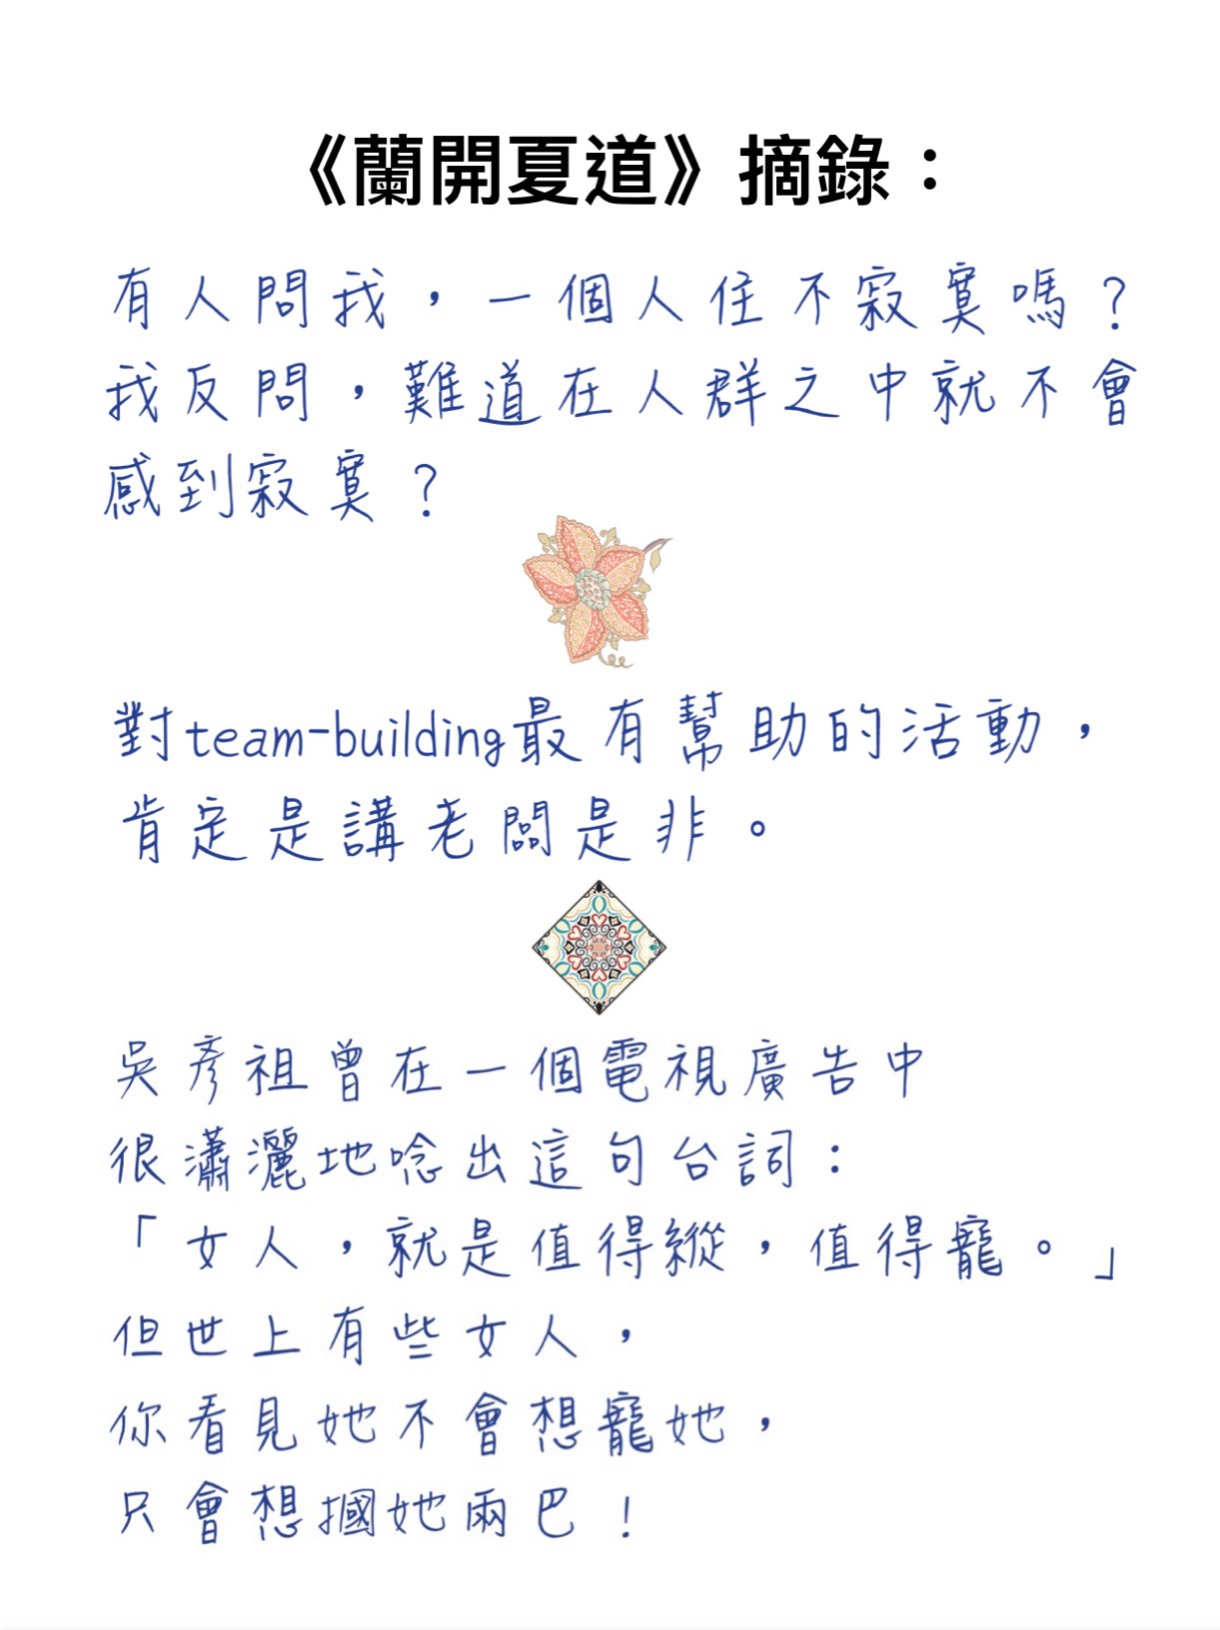 《蘭開夏道》摘錄：
有人問我，一個人住不寂寞嗎？
我反問，難道在人群之中就不會
感到寂寞？
對team-building最有幫助的活動，
肯定是講老闆是非。
吳彥祖曾在一個電視廣告中
很瀟灑地唸出這句台詞：
「女人，就是值得縱，值得寵。」
但世上有些女人，
你看見她不會想寵她，
只會想摑她兩巴！